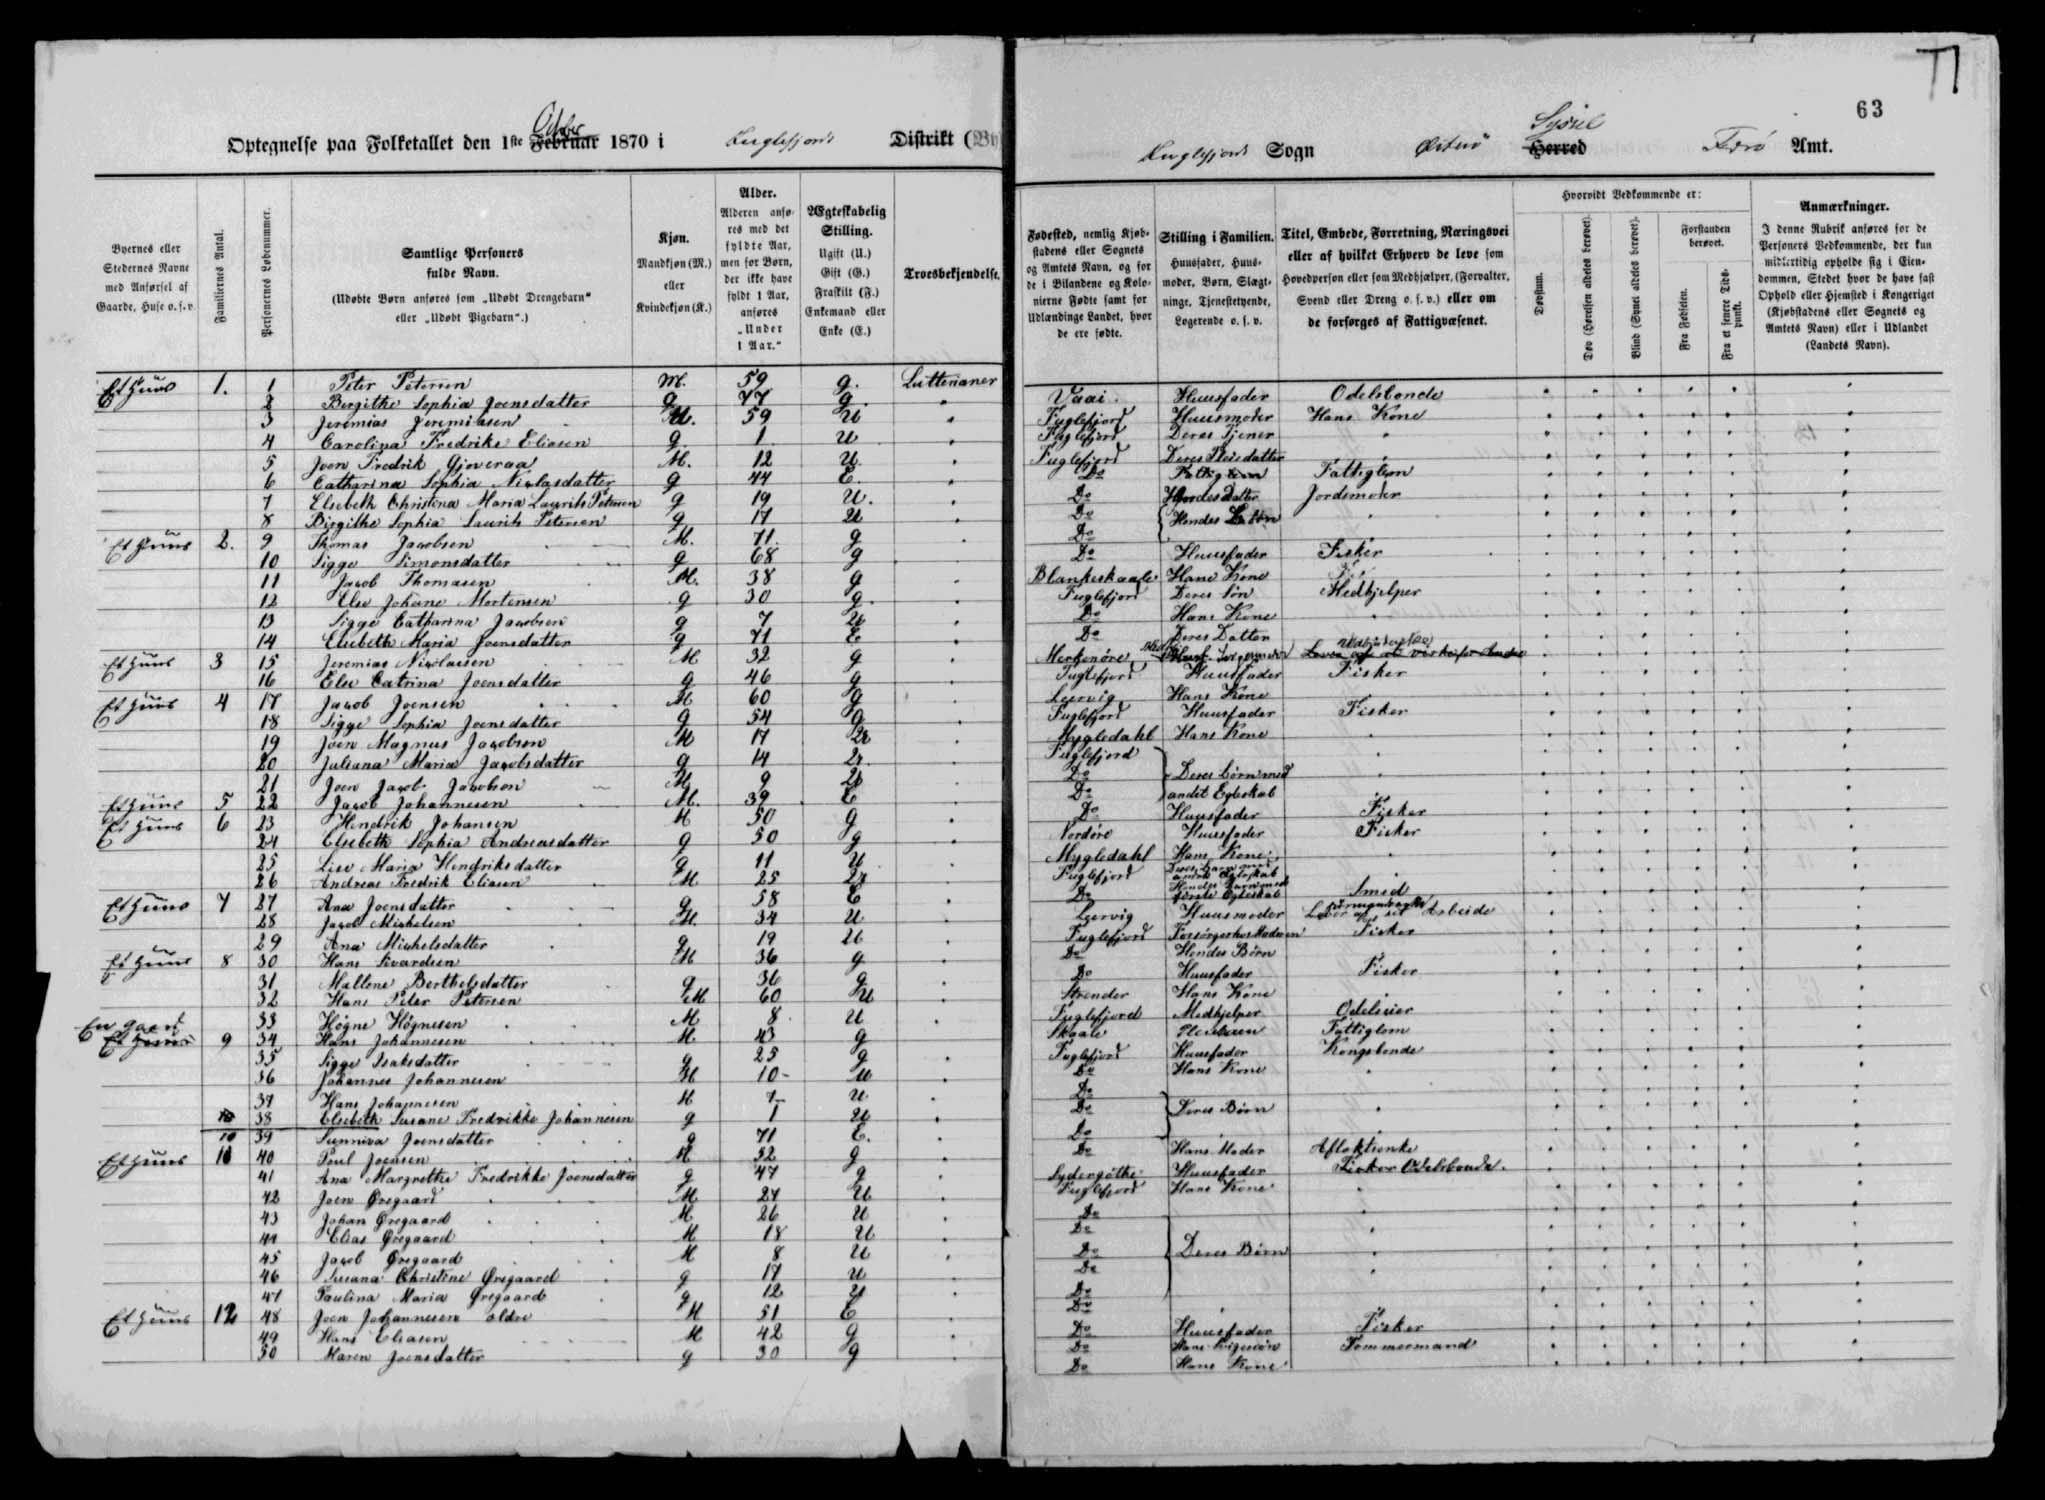 63
Octber
Optegnelse paa Folketallet den 1ste Februar 1870 i Fuglefjords Distrikt (By
Fuglefjords Sogn Østerø Herred Sysel Færø Amt.
Byernes eller Stedernes Navne med Anførsel af Gaarde, Huse o. s. v.
Familiernes Antal.
Personernes Løbenummer.
Samtlige Personers fulde Navn.
(Udøbte Børn anføres som „Udøbt Drengebarn“ eller „Udøbt Pigebarn“.)
Kjøn.
Mandkjøn (M.) eller Kvindekjøn (K.)
Alder.
Alderen anføres med det fyldte Aar, men for Børn, der ikke have fyldt 1 Aar, anføres „Under 1 Aar.“
Ægteskabelig Stilling.
Ugift (U.) Gift (G.) Fraskilt (F.) Enkemand eller Enke (E.)
Troesbekjendelse.
Fødested, nemlig Kjøbstadens eller Sognets og Amtets Navn, og for de i Bilandene og Kolonierne Fødte samt for Udlændinge Landet, hvor de ere fødte.
Stilling i Familien.
Huusfader, Huusmoder, Børn, Slægtninge, Tjenestetyende, Logerende o. s. v.
Titel, Embede, Forretning, Næringsvei eller af hvilket Erhverv de leve som Hovedperson eller som Medhjælper, (Forvalter, Svend eller Dreng o. s. v.) eller om de forsørges af Fattigvæsenet.
Hvorvidt Vedkommende er:
Døvstum.
Døv (Hørelsen aldeles berøvet).
Blind (Synet aldeles berøvet).
Forstanden berøvet.
Fra Fødselen.
Fra et senere Tidspunkt.
Anmærkninger.
I denne Rubrik anføres for de Personers Vedkommende, der kun midlertidig opholde sig i Eiendommen, Stedet hvor de have fast Ophold eller Hjemsted i Kongeriget (Kjøbstadens eller Sognets og Amtets Navn) eller i Udlandet (Landets Navn).
Et Huus 1. 1 Peter Petersen M. 59 g. Lutterianer Vaai. Huusfader Odelsbonde
2 Birgithe Sophia Joensdatter q 77 g. Fuglefjord Huusmoder Hans Kone
3 Jeremias Jeremiasen M. 59 U Fuglefjord Deres Tjener
4 Carolina Fredrike Eliasen q 1 U Fuglefjord Deres Pleiedatter
5 Joen Fredrik Gjoveraa M. 12 U. Do Fattiglem
6 Catharina Sophia Nicolasdatter q 44 E. Do Jordemoder
7 Elsebeth Christina Maria Laurits Petersen q 19 U. Do Hendes
8 Birgithe Sophia Laurits Petersen q 17 U Do
Et Huus 2. 9 Thomas Jacobsen M. 71 g Do Huusfader Fisker
10 Sigge Simonsdatter q 68 g Blankeskaale Hans Kone
11 Jacob Thomasen M. 38 g Fuglefjord Deres Søn Medhjelper
12 Else Johane Mortensen q 30 g. Do Hans Kone
13 Sigge Catharina Jacobsen q 7 U Do Deres Datter
14 Elsebeth Maria Joensdatter q 71 E
Et Huus 3 15 Jeremias Nicolaisen M 32 g Fuglefjord Huusfader Fisker
16 Else Catrina Joensdatter q 46 g Leervig Hans Kone
Et Huus 4 17 Jacob Joensen M 60 g Fuglefjord Huusfader Fisker
18 Sigge Sophia Joensdatter q 54 g Mygledahl Hans Kone
19 Joen Magnus Jacobsen M 17 U Fuglefjord
20 Juliana Maria Jacobsdatter q 14 U. Do Deres børn med
21 Joen Jacob Jacobsen M 9 U Do andet Egteskab
Et Huus 5 22 Jacob Johannesen M. 39 E Do Huusfader Fisker
Et Huus 6 23 Hendrik Johansen M 50 g Nordøre Huusfader Fisker
24 Elsebeth Sophia Andreasdatter q 50 g Mygledahl Hans Kone
25 Lise Maria Hendriksdatter q 11 U Fuglefjord Deres barn med andet Egteskab
26 Andreas Fredrik Eliasen M 25 U Do Hendes barn med første Egteskab Smed
Et Huus 7 27 Ana Joensdatter q 58 E Leervig Huusmoder Lever af sit Arbeide
28 Jacob Michelsen M. 34 U Fuglefjord Forsørger hos Moderen Fisker
29 Ana Michelsdatter q 19 U Do Hendes Børn
Et Huus 8 30 Hans Sivardsen M 36 g Do Huusfader Fisker
31 Mallene Berthelsdatter q 36 g Strender Hans Kone
32 Hans Peter Petersen M 60 U Fuglefjord Medhjelper Odelseier
33 Høgne Høgnesen M 8 U Skaale Pleiesøn Fattiglem
En gaard Et Huus 9 34 Hans Johannesen M 43 g Fuglefjord Huusfader Kongsbonde
35 Sigge Isaksdatter q 25 g Do Hans Kone
36 Johannes Johannesen M 10 U Do
37 Hans Johannesen M 7 U Do Deres Børn
38 Elsebeth Susane Fredrikke Johannesen q 1 U Do
10 39 Sunniva Joensdatter q 71 E. Do Hans Moder Aftægtsenke
Et Huus 11 40 Poul Joensen M 52 g Sydergøthe Huusfader Fisker Odelsbonde.
41 Ana Margrethe Fredrikke Joensdatter q 47 g Fuglefjord Hans Kone
42 Joen Øregaard M 27 U Do
43 Johan Øregaard M 26 U Do
44 Elias Øregaard M 18 U Do Deres Børn
45 Jacob Øregaard M 8 U Do
46 Susana Christine Øregaard q 17 U Do
47 Paulina Maria Øregaard q 12 U Do
Et Huus 12 48 Joen Johannesen ældre M 51 E Do Huusfader Fisker
49 Hans Eliasen M 42 g Do Hans Svigersøn Tømmermand
50 Maren Joensdatter q 30 g Do Hans Kone